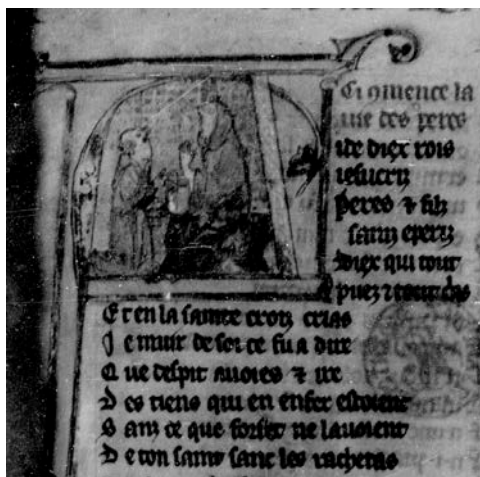 Ci ꝯmence la
uie des peres
ide diex rois
iesucriz
peres ⁊ filz
sainz eperiz
Diex qui tout
puez ⁊ tout
Et en la sainte croiz crias
Je muir de soi ce fu a dire
Que despit auoies ⁊ ire
Des tiens qui en enfer estoient
Sanz ce que forfet ne lauoient
De ton saint sanc les rachetas